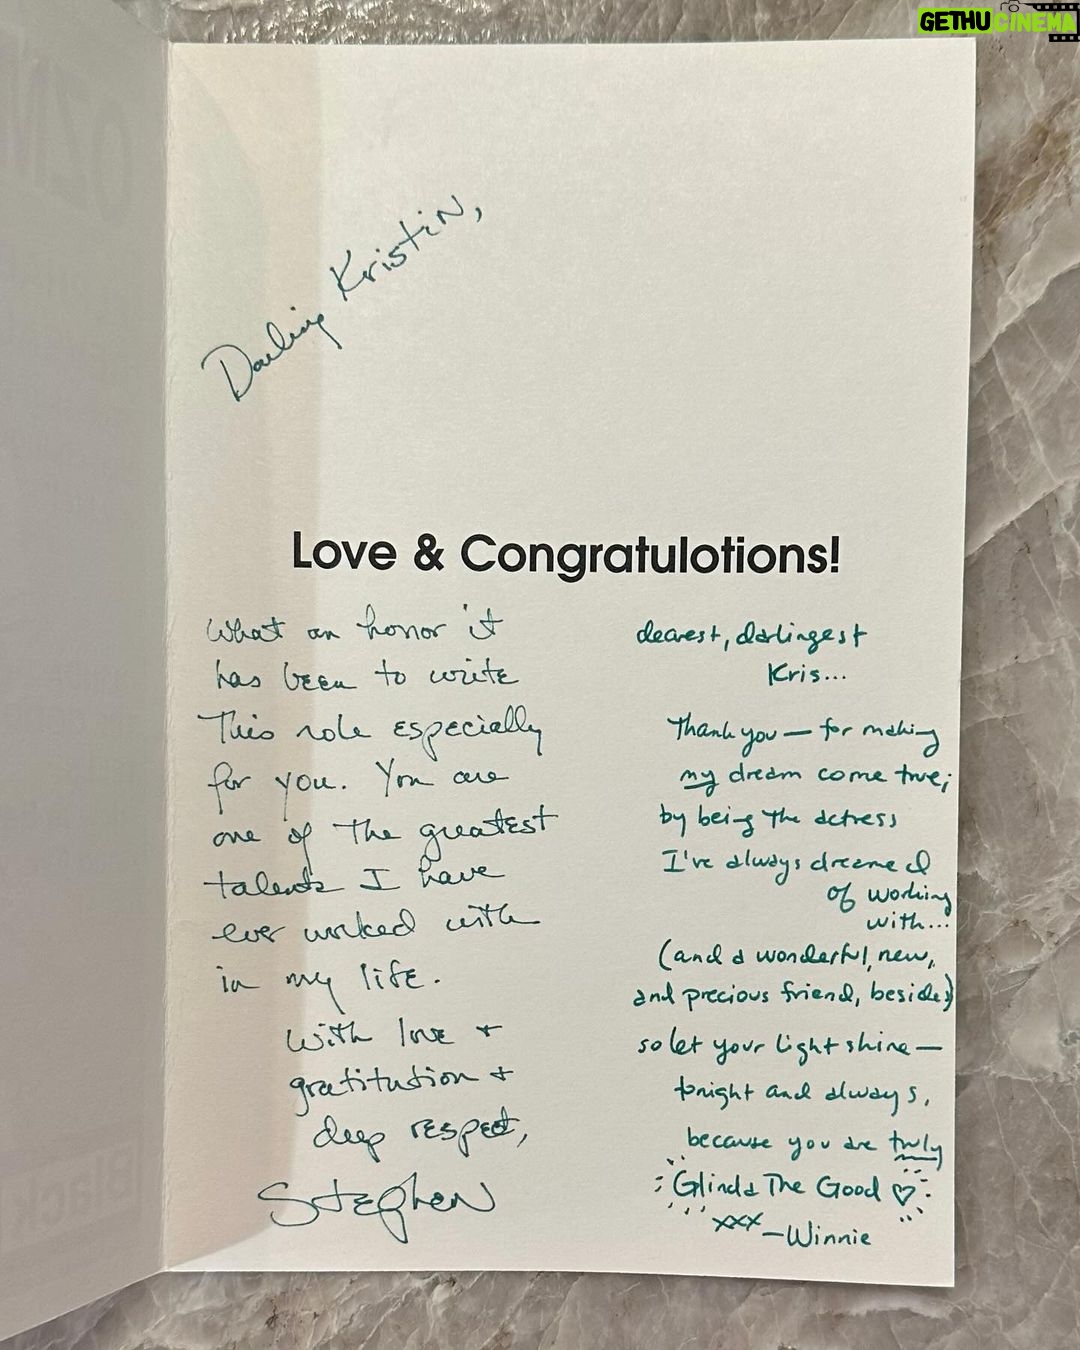 GETHUCINEMA
Darling Kristin,
Love & Congratulotions!
What an honor it
has been to write
This role especially
for you. You are
one of The greatest
talents I have
ever worked with
in my life.
With love +
gratitution +
deep respect,
Stephen
dearest, darlingest
Kris...
Thank you — for making
my dream come true;
by being the actress
I've always dreamed
of working
with...
(and a wonderful, new,
and precious friend, besides)
so let your light shine —
tonight and always,
because you are truly
Glinda The Good ♡
xxx —Winnie